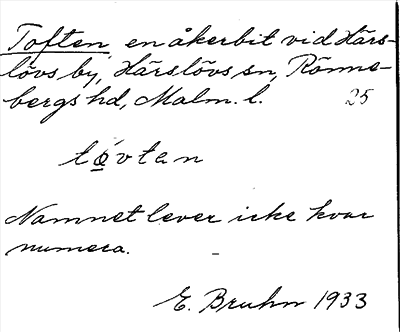 Toften, en åkerbit vid Härs-
lövs by, Härslövs sn, Rönne-
bergs hd, Malm. l. 25
tǫ́vtan
Namnet lever icke kvar
numera.
E. Bruhn 1933